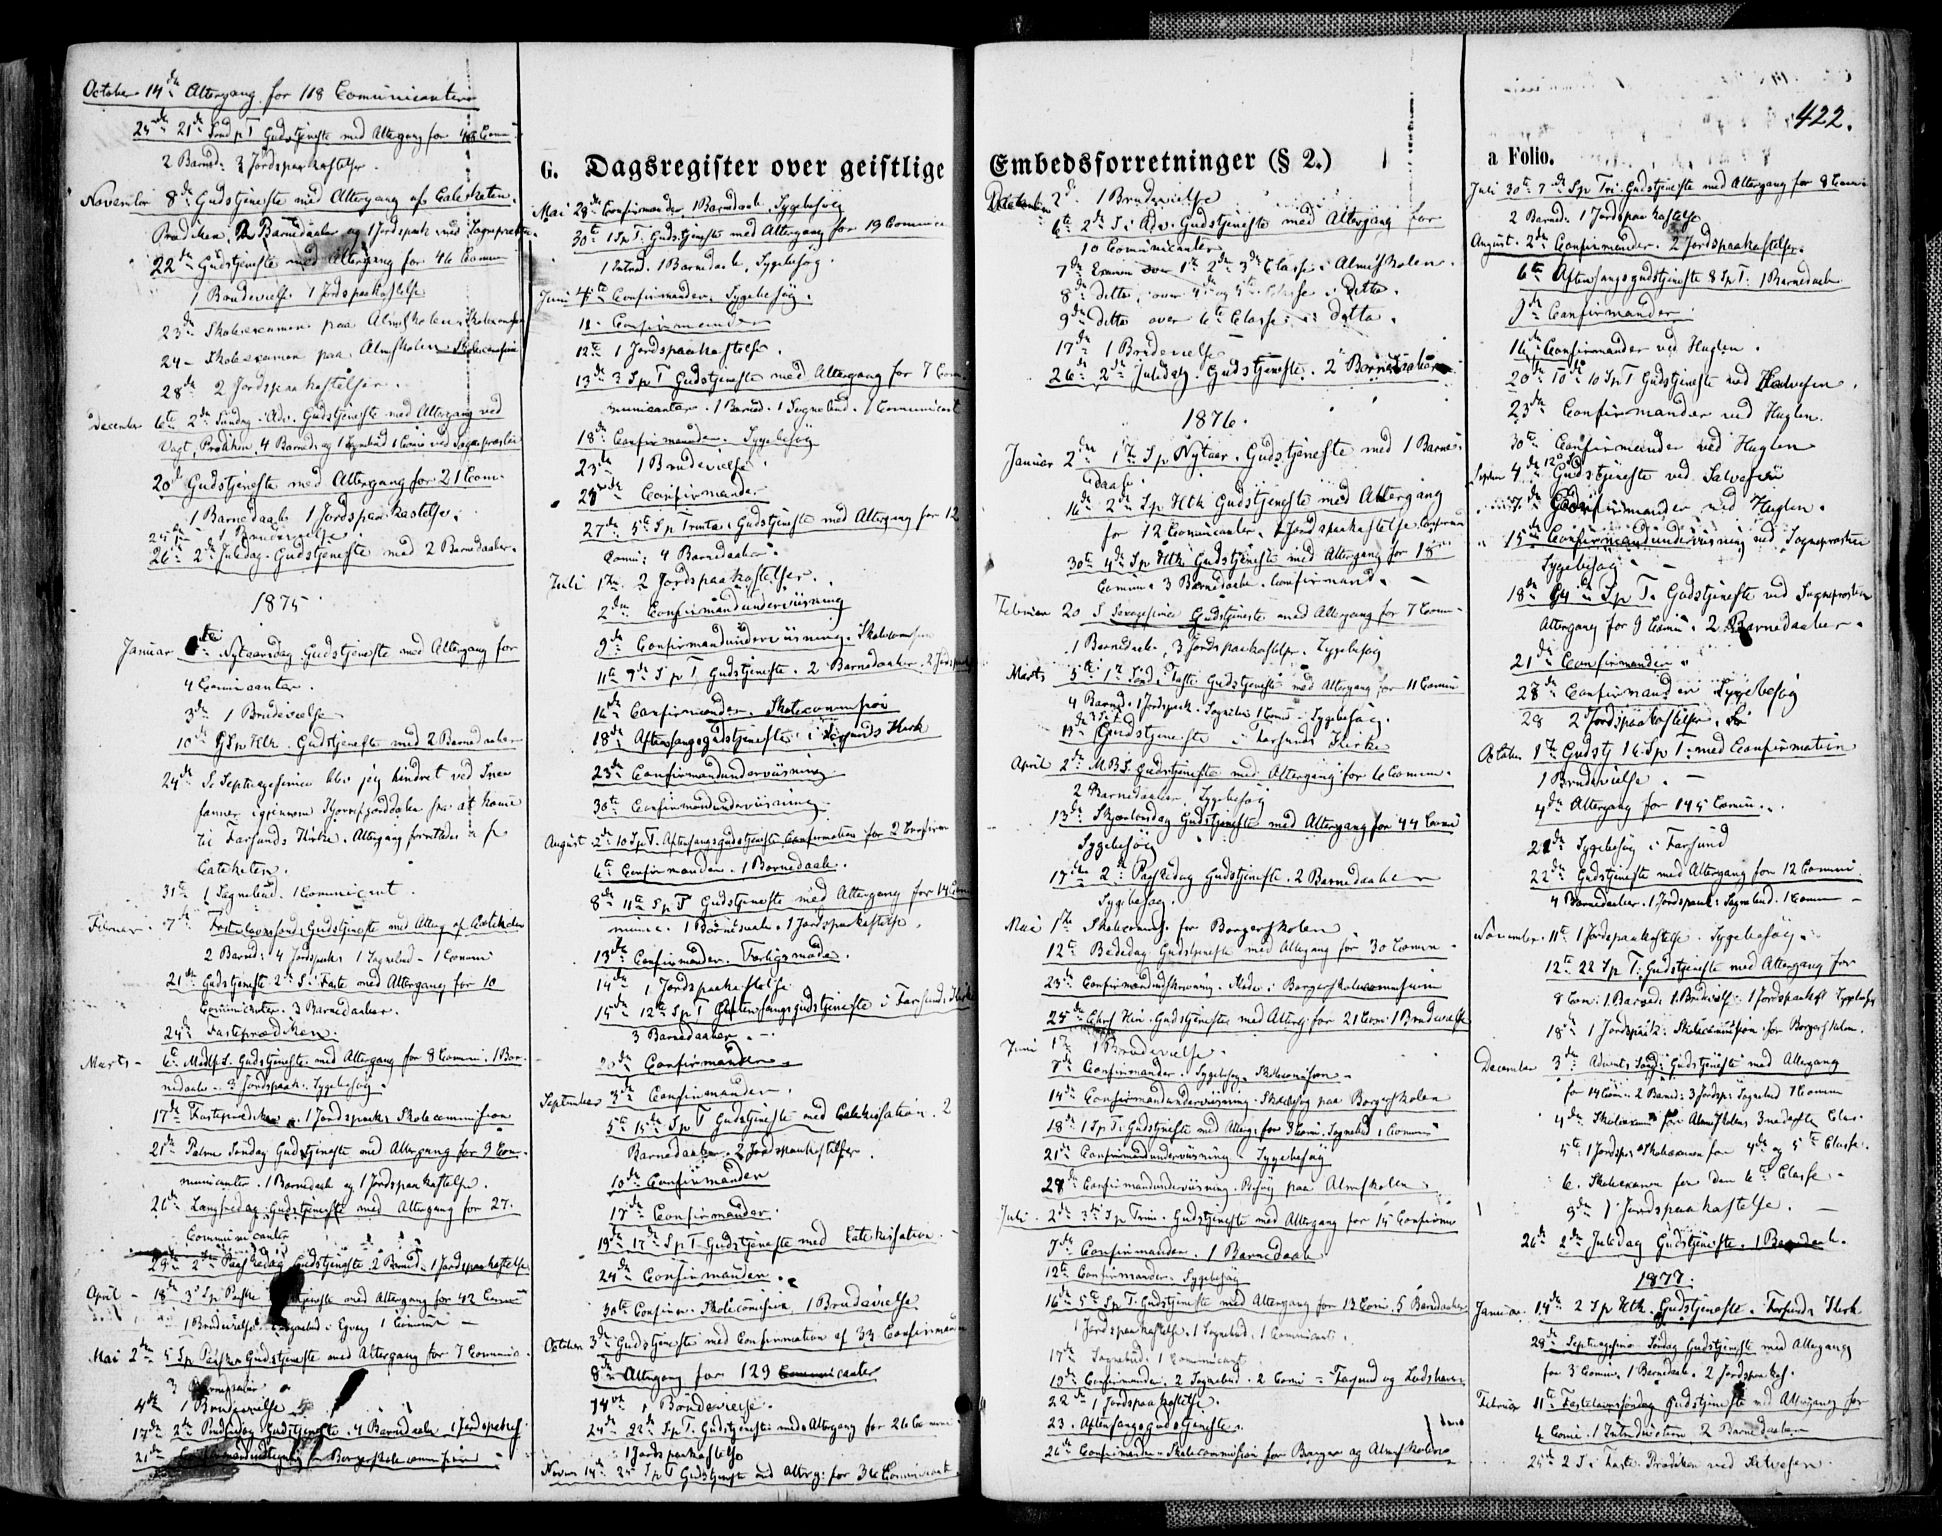 October 14de Altergang for 118 Communicanter
25de 21de Sønd p T Gudstjeneste med Altergang for
2 Barned. 3 Jordspaakastelser.
November 8de Gudstjeneste med Altergang af Catecheten.
Prædiken, 2 Barnedaaber og 1 Jordspaak. ved Sogneprsten
22de Gudstjeneste med Altergang for 46 Commun
1 Brudevielse 1 Jordspaakastelse
23de Skoleexamen paa Almskolen, Skolecommis
24 - Skoleexamen paa Almskolen
28de 2 Jordspaakastelser.
December 6te 2de Søndag i Adv. Gudstjeneste med Altergang ved
Vogt, Prædiken, 4 Barned. og 1 Sognebud 1 Comm ved Sogneprsten
20de Gudstjeneste med Altergang for 21 Com-
1 Barnedaab 1 Jordspaakastelse.
1 Brudevielse.
26de 2de Juledag. Gudstjeneste med 2 Barnedaaber.
1875
Januar Nytaarsdag Gudstjeneste med Altergang for
4 Communicanter.
3de 1 Brudevielse
10de Sp Htk. Gudstjeneste med 2 Barnedaaber
24de S. Septuagesima blev jeg hindret ved Snee
igjennem at komme
til Farsunds Kirke. Altergang
Catecheten.
31te 1 Sognebud. 1 Communicant.
Februar 7de Fastelavnssønd. Gudstjeneste med Alterg af Catecheten
2 Barned. 4 Jordspaak. 1 Sognebud - 1 Commun
21de Gudstjeneste 2de S. i Faste med Altergang for 10
Communicanter. 3 Barnedaaber.
24de Fasteprædiken.
Marts - Gudstjeneste med Altergang for 8 Commun. 1 Bar-
nedaab - 3 Jordspaak. Sygebesøg.
17de Fasteprædiken. 1 Jordspaak. Skolecommission
21de Palme Søndag Gudstjeneste med Altergang for 9 Com-
municanter. 1 Barnedaab og 1 Jordspaakastelse.
26de Langfredag Gudstjeneste med Altergang for 27.
Communicanter
29de 2den Paaskedag Gudstjeneste. 2 Barned. 1 Jordspaakastelse
April - 18de 3 Sp Paaske med Altergang for 42 Comm
1 Brudevielse 1 Commun
Mai 2de 5 Sp Paaske Gudstjeneste med Altergang for 7 Commun.
3 Barnedaaber
4de 1 Brudevielse
17de 2de Pindsedag Gudstjeneste. 4 Barnedaaber
21de Borgerskolecommission
G. Dagsregister over geistlige
Mai 28de Confirmander, 1 Barnedaab, Sygebesøg
30te 1 Sp T. Gudstjeneste med Altergang for 19 Commun
1 Introd. 1 Barnedaab, Sygebesøg.
Juni 4te Confirmander, Sygebesøg.
11 - Confirmander
12te 1 Jordspaakastelse.
13de 3 Sp T Gudstjeneste med Altergang for 7 Com-
municanter. 1 Barned. 1 Sognebud. 1 Communicant
18de Confirmander. Sygebesøg
23de 1 Brudevielse.
Confirmander
27de 5te Sp Trinita. Gudstjeneste med Altergang for 12
Commu: 4 Barnedaaber.
Juli 1ste 2 Jordspaakastelser.
2de Confirmandunderviisning
9de Confirmandunderviisning. Skolecommission
11te 7de S p T Gudstjeneste. 2 Barnedaaber.
16de Confirmander. Skolecommission
18de Aftensangsgudstjeneste i Farsunds Kirk
23de Confirmandunderviisning.
30te Confirmandunderviisning.
August 2de 10 Sp T. Aftensangsgudstjeneste Confirmation for 2 Confirm
6te Confirmander. 1 Barnedaab.
8de 11te Sp T Gudstjeneste med Altergang for 14 Com
munic. 1 Barnedaab. 1 Jordspaakastelse.
13de Confirmander. Forligsmøde.
14de 1 Jordspaakastelse
15de 12te Sp T Aftensangsgudstjeneste i Farsund Kirke
3 Barnedaaber.
20de Confirmander.
September 3de Confirmander.
5te 15de Sp T Gudstjeneste med Catekisation. 2
Barnedaaber. 2 Jordspaakastelser.
10de Confirmander
17de Confirmander.
19de 17de Sp T. Gudstjeneste med Catekisation.
24de Confirmander.
30te Confirm. Skolecommission. 1 Brudevielse
October 3de Gudstjeneste med Confirmation af 33 Confirmander
8de Altergang for 129 Communicanter
14de 1 Brudevielse.
24de 22de Sp T. Gudstjeneste med Altergang for 26 Comm
1 Jordspaakastelse
Novem 14de 25 Sp T Gudstjeneste med Alterg: for 36 Communicant
Embedsforretninger (§ 2.)
December 2de 1 Brudevielse
5te 2de S. i Adv. Gudstjeneste med Altergang for
10 Communicanter
7de Examen over 1ste 2de 3de Classe i Almskolen.
8de detto over 4de og 5te Classe i detto.
9de detto over 6te Classe i detto.
17de 1 Brudevielse
26de 2de Juledag. Gudstjeneste. 2 Barnedaaber
1876.
Januar 2de 1ste Sp Nytaar. Gudstjeneste med 1 Barne-
daab.
16de 2de Sp. Htk Gudstjeneste med Altergang
for 12 Communicanter. 1 Jordspaakastelse.
30te 4de Sp Htk Gudstjeneste med Altergang for 18
Commun. 3 Barnedaaber. Confirmand.
Februar 20 S Sexagesima Gudstjeneste med Altergang for 7 Comm-
1 Barnedaab, 3 Jordspaakastelser. Sygebesøg
Marts 5te 1ste Sønd i Faste Gudstjeneste med Altergang for 11 Commun
4 Barned. 1 Jordspaak. Sognebud 1 Comm. Sygebesøg.
Gudstjeneste i Farsunds Kirke
April 2de MBS. Gudstjeneste med Altergang for 6 Commun.
2 Barnedaaber. Sygebesøg
13de Skjærtorsdag Gudstjeneste med Altergang for 44 Comm
Sygebesøg
17de 2de Paaskedag Gudstjeneste. 2 Barnedaaber
Sygebesøg.
Mai 1ste Skolecomms. for Borgerskolen
12te Bededag Gudstjeneste med Altergang for 30 Comm
23de i Borgerskolecommission
25de Chr Him. Gudstjeneste med Alterg. for 21 Com. 1 Brudevielse
Juni 1 Brudevielse.
7de Confirmander. Sygebesøg. Skolecommission -
14de Confirmandunderviisning. Skolebesøg paa Borgerskolen
18de 1 Sp T. Gudstjeneste med Alterg. for 3 Com. Sognebud 1 Comm
21de Confirmandunderviisning. Sygebesøg
28de Confirmandunderviisning. Besøg paa Almskolen
Juli 2de 3de Sp Trin. Gudstjeneste med Altergang for 15
7de Confirmander. 1 Barnedaab
12te Confirmander. Sygebesøg
16de 5te Sp T. Gudstjeneste med Altergang for 13 Com. 5 Barnedaaber
1 Jordspaakastelse. 1 Sognebud. 1 Communicant.
17de Sognebud. 1 Communicant
19de Confirmander. 2 Sognebud. 2 Com = Farsund og Lodshavn
22de 1 Jordspaakastelse.
23. Aftensangsgudstjeneste.
26de Confirmander - Skolecommission for Borger og Almskolen
422.
a Folio.
Juli 30te 7de Sp Tri. Gudstjeneste med Altergang for 8 Comm
2 Barned. 1 Jordspaakastelse
August. 2de Confirmander. 2 Jordspaakastelser.
6te Aftensangsgudstjeneste 8 Sp T. 1 Barnedaab
9de Confirmander
16de Confirmander ved Huglen.
20de 10de Sp T Gudstjeneste ved
23de Confirmander ved Huglen.
30te Confirmander ved Huglen
Septem 4de Gudstjeneste ved
7de Confirmander ved Huglen.
15de Confirmandunderviisning ved Sogneprsten
Sygebesøg -
18de Sp T. Gudstjeneste ved Sogneprsten
Altergang for 9 Commu. 2 Barnedaaber.
21de Confirmander.
28de Confirmander Sygebesøg
28 2 Jordspaakastelser.
October 1ste Gudstj 16 Sp T. med Confirmation
1 Brudevielse. -
4de Altergang for 145 Commu.
Sygebesøg i Farsund
22de Gudstjeneste med Altergang for 12 Commu.
4 Barnedaaber. 1 Jordspaak: Sognebud. 1 Comm -
November 11te 1 Jordspaakastelse. Sygebesøg.
12te 22 Sp T. Gudstjeneste med Altergang for
8 Com. 1 Barned. 1 Brudeviels. 1 Jordspaakast Sygebesøg
18de 1 Jordspaak. Skolecommission for Borgerskolen.
December 3de Advents Sønd. Gudstjeneste med Altergang
for 14 Com. 2 Barned. 3 Jordsp. Sognebud 1 Comm
4de Skoleexamen for Almskolens 3 nederste Clas.
5te 1 Jordsp. Skoleexamen for 4de og 5te Classe.
6. Skoleexamen for den 6te Classe -
9de 1 Jordspaakastelse.
26de 2de Juledag Gudstjeneste. 1 Barnedaab.
1877.
Januar 14de 2 Sp Htk. Gudstjeneste. Farsunds Kirk
28de Septuagesima Søndag Gudstjeneste med Altergang
for 3 Comm. 1 Barnedaab. 2 Jordspaakast.
Februar 11te Fastelavnssøndag Gudstjeneste med Altergang for
4 Com. 1 Introduction 2 Barnedaaber
25de 2 S i Faste. Prædiken ved